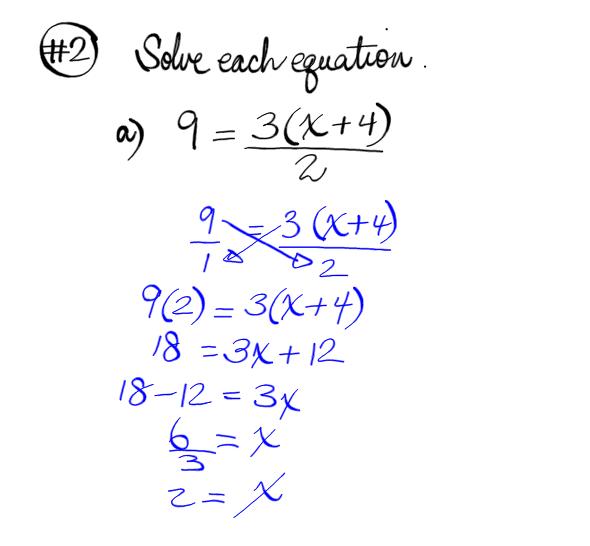 #2 Solve each equation.
a) 9 = 3(x+4)/2
9/1 = 3(x+4)/2
9(2) = 3(x+4)
18 = 3x + 12
18-12 = 3x
6/3 = x
2 = x